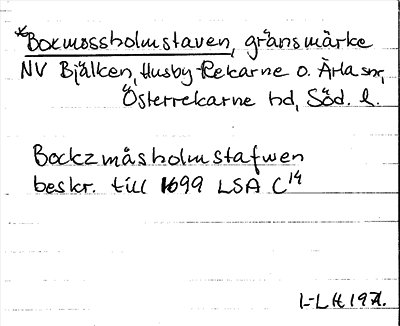 *Boxmossholmstaven, gränsmärke
NV Bjälken, Husby-Rekarne o. Ärla snr,
Österrekarne hd, Söd. l.
Bockzmåsholmstafwen
beskr. till 1699 LSA C¹⁴
I-L H 1971.